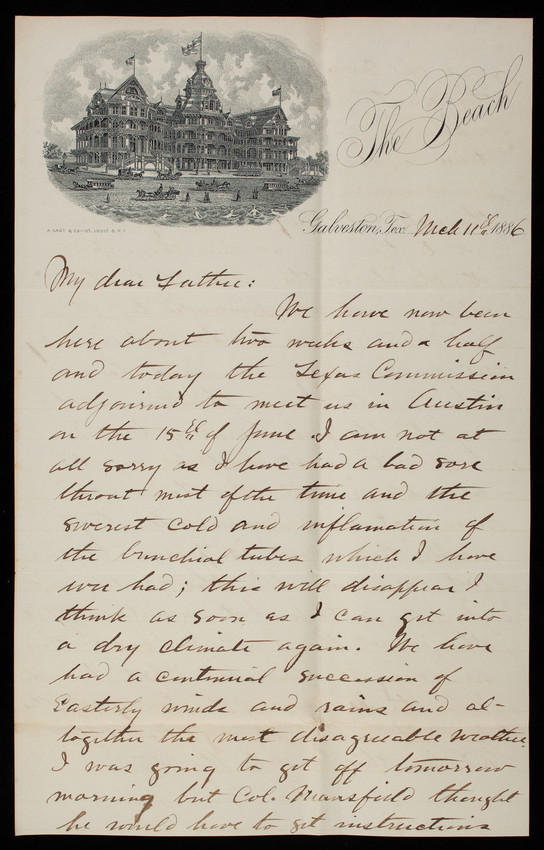 The Beach
Galveston, Tex. Mch 11th 1886
My dear Father:
We have now been
here about two weeks and a half
and today the Texas Commission
adjourned to meet us in Austin
on the 15th of June. I am not at
all sorry as I have had a bad sore
throat most of the time and the
severest cold and inflamation of
the bronchial tubes which I have
ever had; this will disappear I
think as soon as I can get into
a dry climate again. We have
had a continual succession of
Easterly winds and rains and al-
together the most disagreeable weather.
I was going to get off tomorrow
morning but Col. Mansfield thought
he would have to get instructions